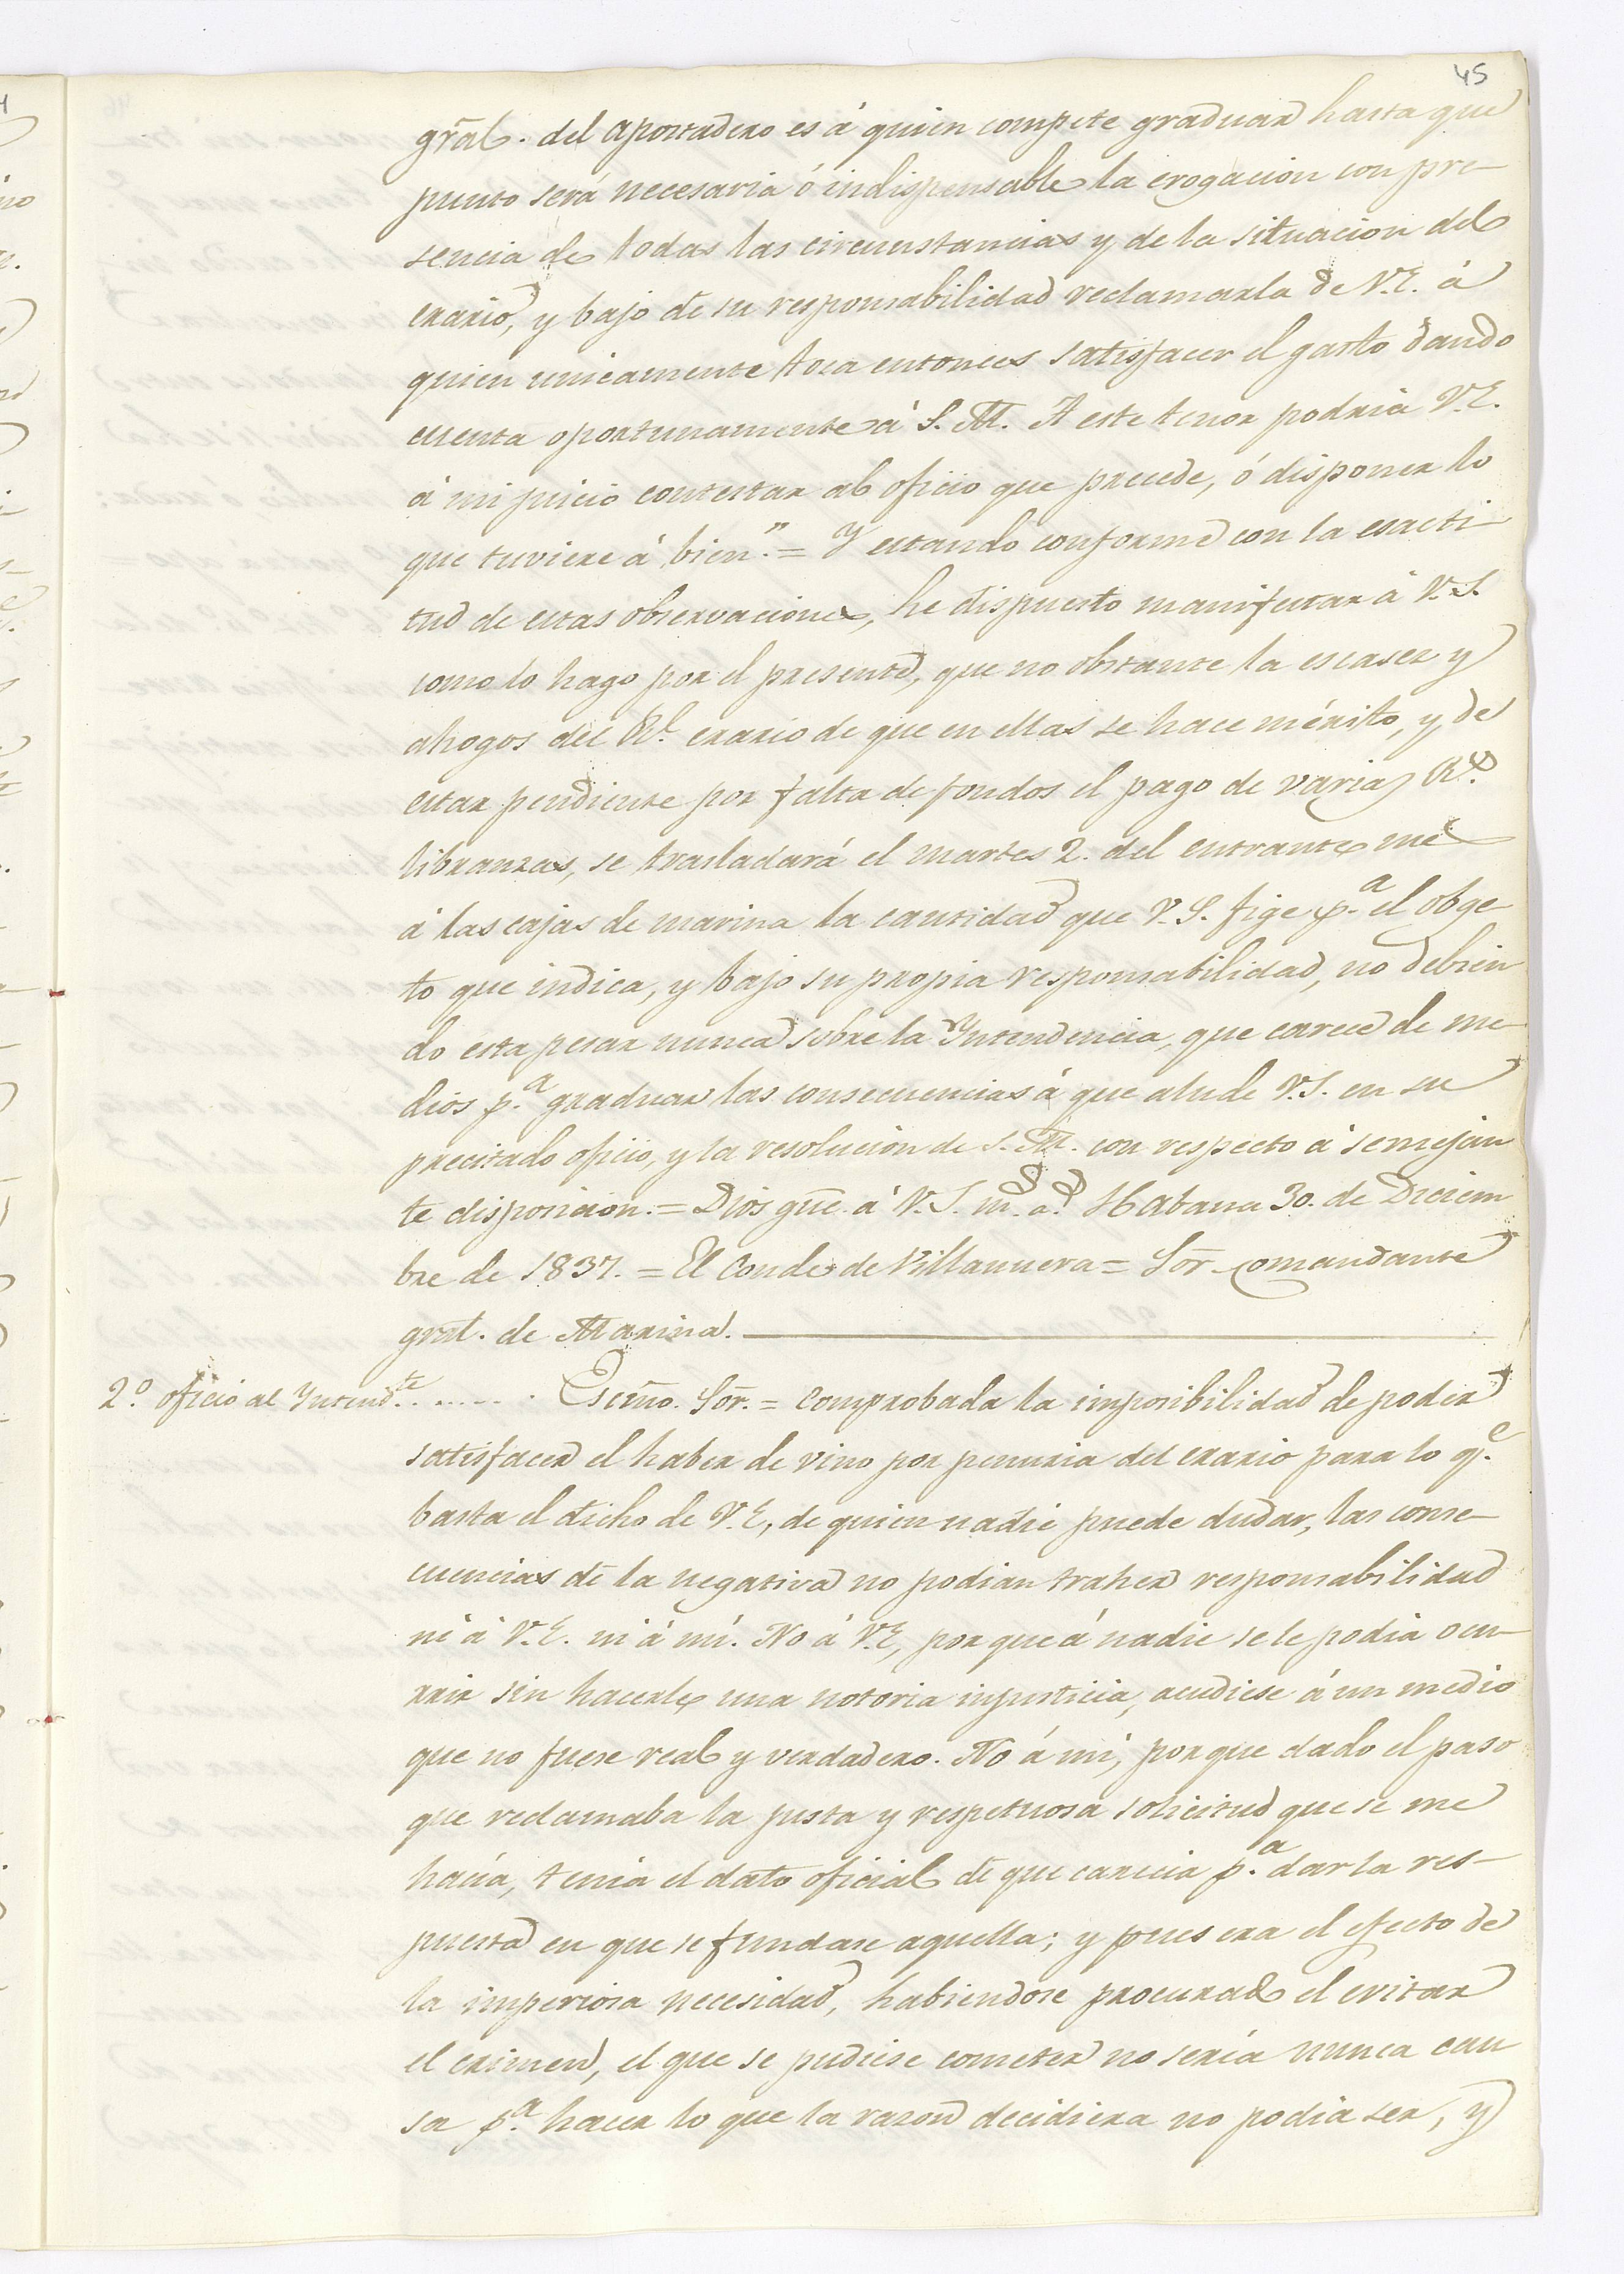 45
gral. del apostadero es á quien compete graduar hasta que
punto será necesaria ó indispensable la erogacion con pre-
sencia de todas las circunstancias y de la situacion del
erario, y bajo de su responsabilidad reclamarla de V.E. á
quien unicamente toca entonces satisfacer el gasto dando
cuenta oportunamente á S.M. A este tenor podria V.E.
á mi juicio contestar al oficio que precede, ó disponer lo
que tuviere á bien." = Y estando conforme con la esacti-
tud de estas observaciones, he dispuesto manifestar á V.S.
como lo hago por el presente, que no obstante la escasez y
ahogos del Rl. erario de que en ellas se hace mérito, y de
estar pendiente por falta de fondos el pago de varias Rs.
libranzas, se trasladará el martes 2. del entrante mes
á las cajas de marina la cantidad que V.S. fige p.a el obge
to que indica, y bajo su propia responsabilidad, no debien
do esta pesar nunca sobre la Yntendencia, que carece de me-
dios p.a graduar las consecuencias á que alude V.S. en su
precitado oficio, y la resolucion de S.M. con respecto á semejan
te disposicion. = Dios gue. á V.S. m.s a.s Habana 30. de Diciem
bre de 1837. = El Conde de Villanueva = Sor. Comandante
gral. de Marina.
2.o oficio al Yntend.te ...... Escmo. Sor. = Comprobada la imposibilidad de poder
satisfacer el haber de vino por penuria del erario para lo q.e
basta el dicho de V.E, de quien nadie puede dudar, las conse-
cuencias de la negativa no podian traher responsabilidad
ni á V.E. ni á mí. No á V.E, por que á nadie se le podia ocu-
rrir sin hacerle una notoria injusticia, acudiese á un medio
que no fuese real y verdadero. No á mi, por que dado el paso
que reclamaba la justa y respetuosa solicitud que se me
hacía, tenia el dato oficial de que carecia p.a dar la res-
puesta en que se fundase aquella; y pues era el efecto de
la imperiosa necesidad, habiendose procurado el evitar
el crimen, el que se pudiese cometer no sería nunca cau
sa p.a hacer lo que la razon decidiera no podia ser, y